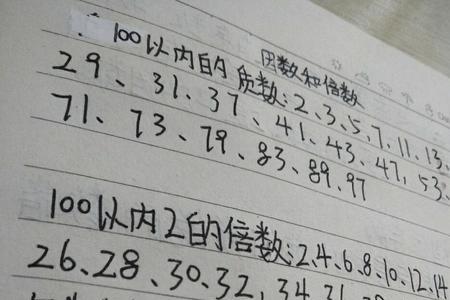 因数和倍数
100以内的质数:2、3、5、7、11、13、
29、31、37、41、43、47、53、
71、73、79、83、89、97
100以内2的倍数:2、4、6、8、10、12、14
26、28、30、32、34、3